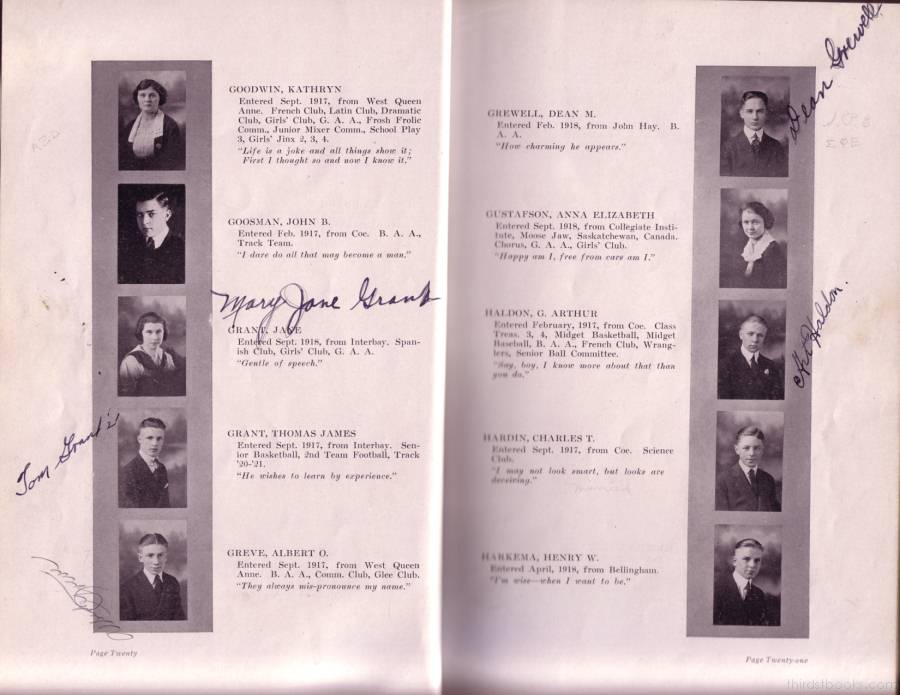 GOODWIN, KATHRYN
Entered Sept. 1917, from West Queen
Anne. French Club, Latin Club, Dramatic
Club, Girls' Club, G. A. A., Frosh Frolic
Comm., Junior Mixer Comm., School Play
3, Girls' Jinx 2, 3, 4.
"Life is a joke and all things show it;
First I thought so and now I know it."
GOOSMAN, JOHN B.
Entered Feb. 1917, from Coe. B. A. A.,
Track Team.
"I dare do all that may become a man."
Mary Jane Grant
GRANT, JANE
Entered Sept. 1918, from Interbay. Span-
ish Club, Girls' Club, G. A. A.
"Gentle of speech."
Tom Grant
GRANT, THOMAS JAMES
Entered Sept. 1917, from Interbay. Sen-
ior Basketball, 2nd Team Football, Track
'20-'21.
"He wishes to learn by experience."
GREVE, ALBERT O.
Entered Sept. 1917, from West Queen
Anne. B. A. A., Comm. Club, Glee Club.
"They always mis-pronounce my name."
Page Twenty
Dean Grewell
GREWELL, DEAN M.
Entered Feb. 1918, from John Hay. B.
A. A.
"How charming he appears."
ΣΦΕ
GUSTAFSON, ANNA ELIZABETH
Entered Sept. 1918, from Collegiate Insti-
tute, Moose Jaw, Saskatchewan, Canada.
Chorus, G. A. A., Girls' Club.
"Happy am I, free from care am I."
HALDON, G. ARTHUR
Entered February, 1917, from Coe. Class
Treas. 3, 4, Midget Basketball, Midget
Baseball, B. A. A., French Club, Wrang-
lers, Senior Ball Committee.
"Say, boy, I know more about that than
you do."
Art Haldon.
HARDIN, CHARLES T.
Entered Sept. 1917, from Coe. Science
Club.
"I may not look smart, but looks are
deceiving."
HARKEMA, HENRY W.
Entered April, 1918, from Bellingham.
"I'm wise—when I want to be."
Page Twenty-one
thirdstbooks.com